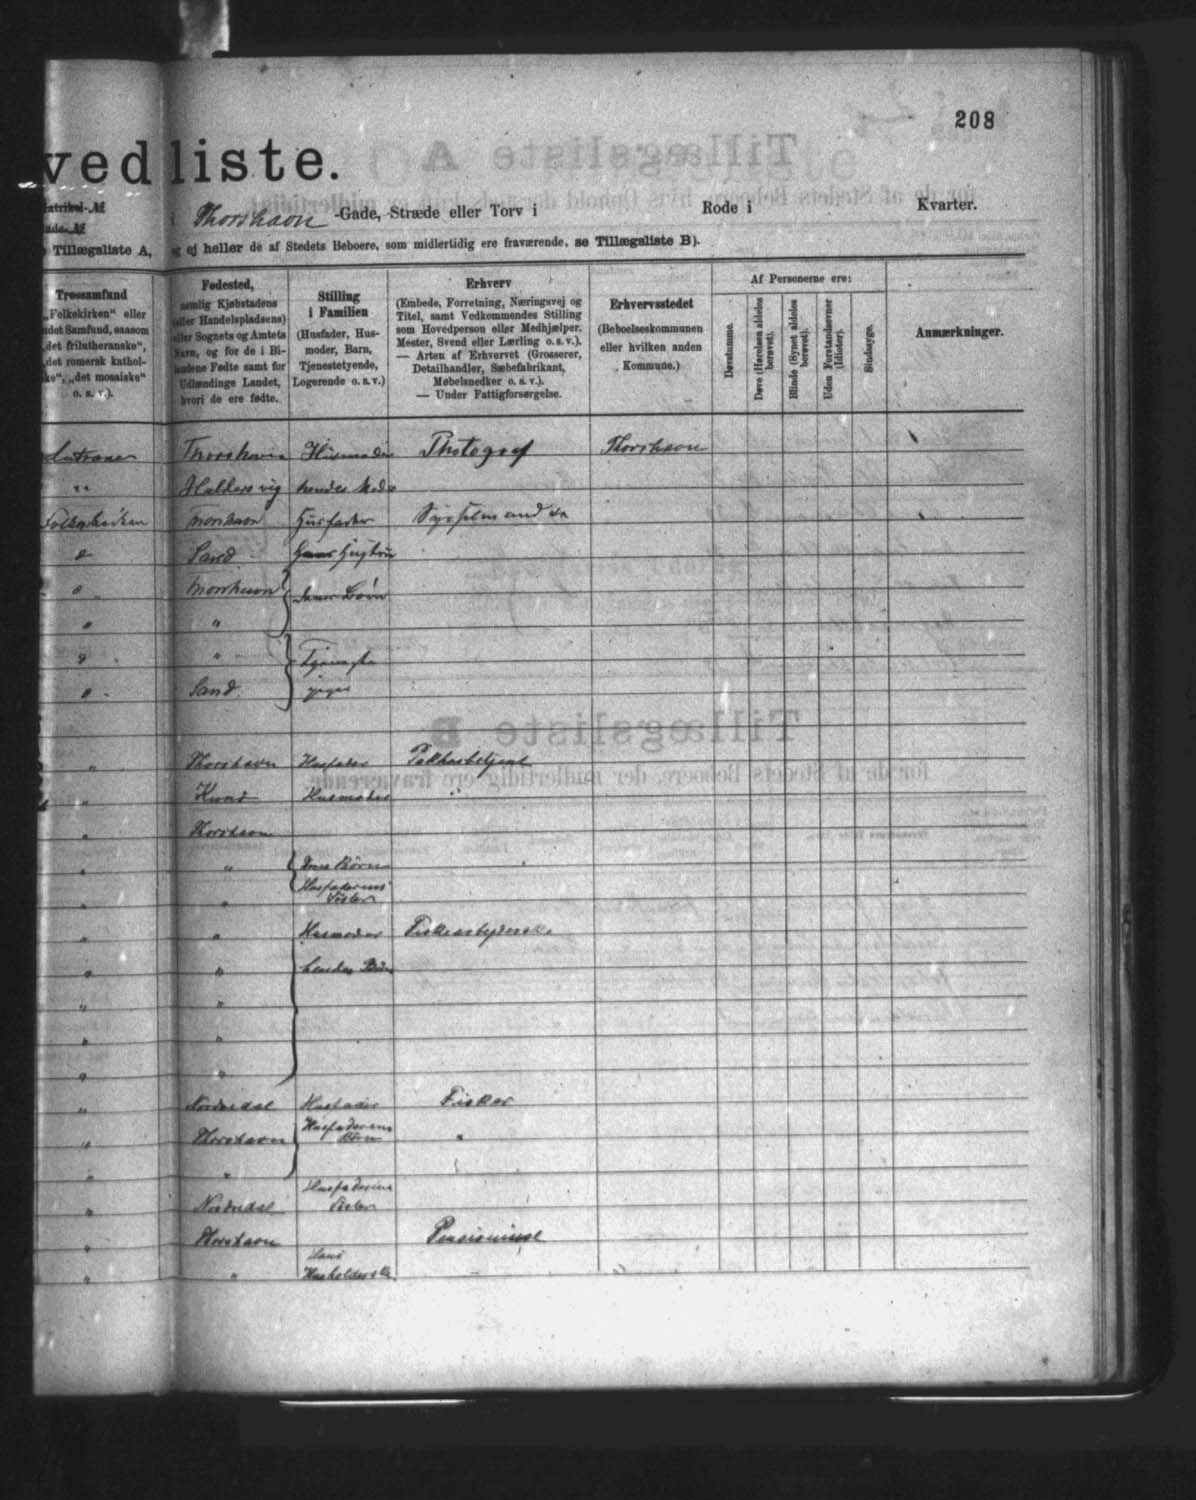 208
vedliste.
Matrikel-№
i Thorshavn -Gade, -Stræde eller Torv i Rode i Kvarter.
Tillægsliste A, og ej heller de af Stedets Beboere, som midlertidig ere fraværende, se Tillægsliste B).
Trossamfund
„Folkekirken“ eller
andet Samfund, saasom
„det frilutheranske“,
„det romersk kathol-
ske“, „det mosaiske“
o. s. v.).
Fødested,
nemlig Kjøbstadens
(eller Handelspladsens)
eller Sognets og Amtets
Navn, og for de i Bi-
landene Fødte samt for
Udlændinge Landet,
hvori de ere fødte.
Stilling
i Familien
(Husfader, Hus-
moder, Barn,
Tjenestetyende,
Logerende o. s. v.)
Erhverv
(Embede, Forretning, Næringsvej og
Titel, samt Vedkommendes Stilling
som Hovedperson eller Medhjælper,
Mester, Svend eller Lærling o. s. v.).
— Arten af Erhvervet (Grosserer,
Detailhandler, Sæbefabrikant,
Møbelsnedker o. s. v.).
— Under Fattigforsørgelse.
Erhvervsstedet
(Beboelseskommunen
eller hvilken anden
Kommune.)
Af Personerne ere:
Døvstumme.
Døve (Hørelsen aldeles berøvet).
Blinde (Synet aldeles berøvet).
Uden Forstandsevner (Idioter).
Sindssyge.
Anmærkninger.
Thorshavn Husmoder Photograf Thorshavn
" hendes Moder
Folkekirken Thorshavn Husfader Sysselmand
" Sand Hans Hustru
" Thorshavn deres Børn
" "
" " Tjeneste
" Sand piger
" Thorshavn Husfader Pakhusbetjent
" Kund Husmoder "
" Thorshavn
" " deres Børn
" " Husfaderens Søster
" " Husmoder Fiskearbejderske
" " hendes Børn
" "
" "
" "
" Nordredal Husfader Fisker
" Thorshavn Husfaderens Børn "
" "
" Nordredal Husfaderens Søster
" Thorshavn Pensionist
" " Hans Husholderske